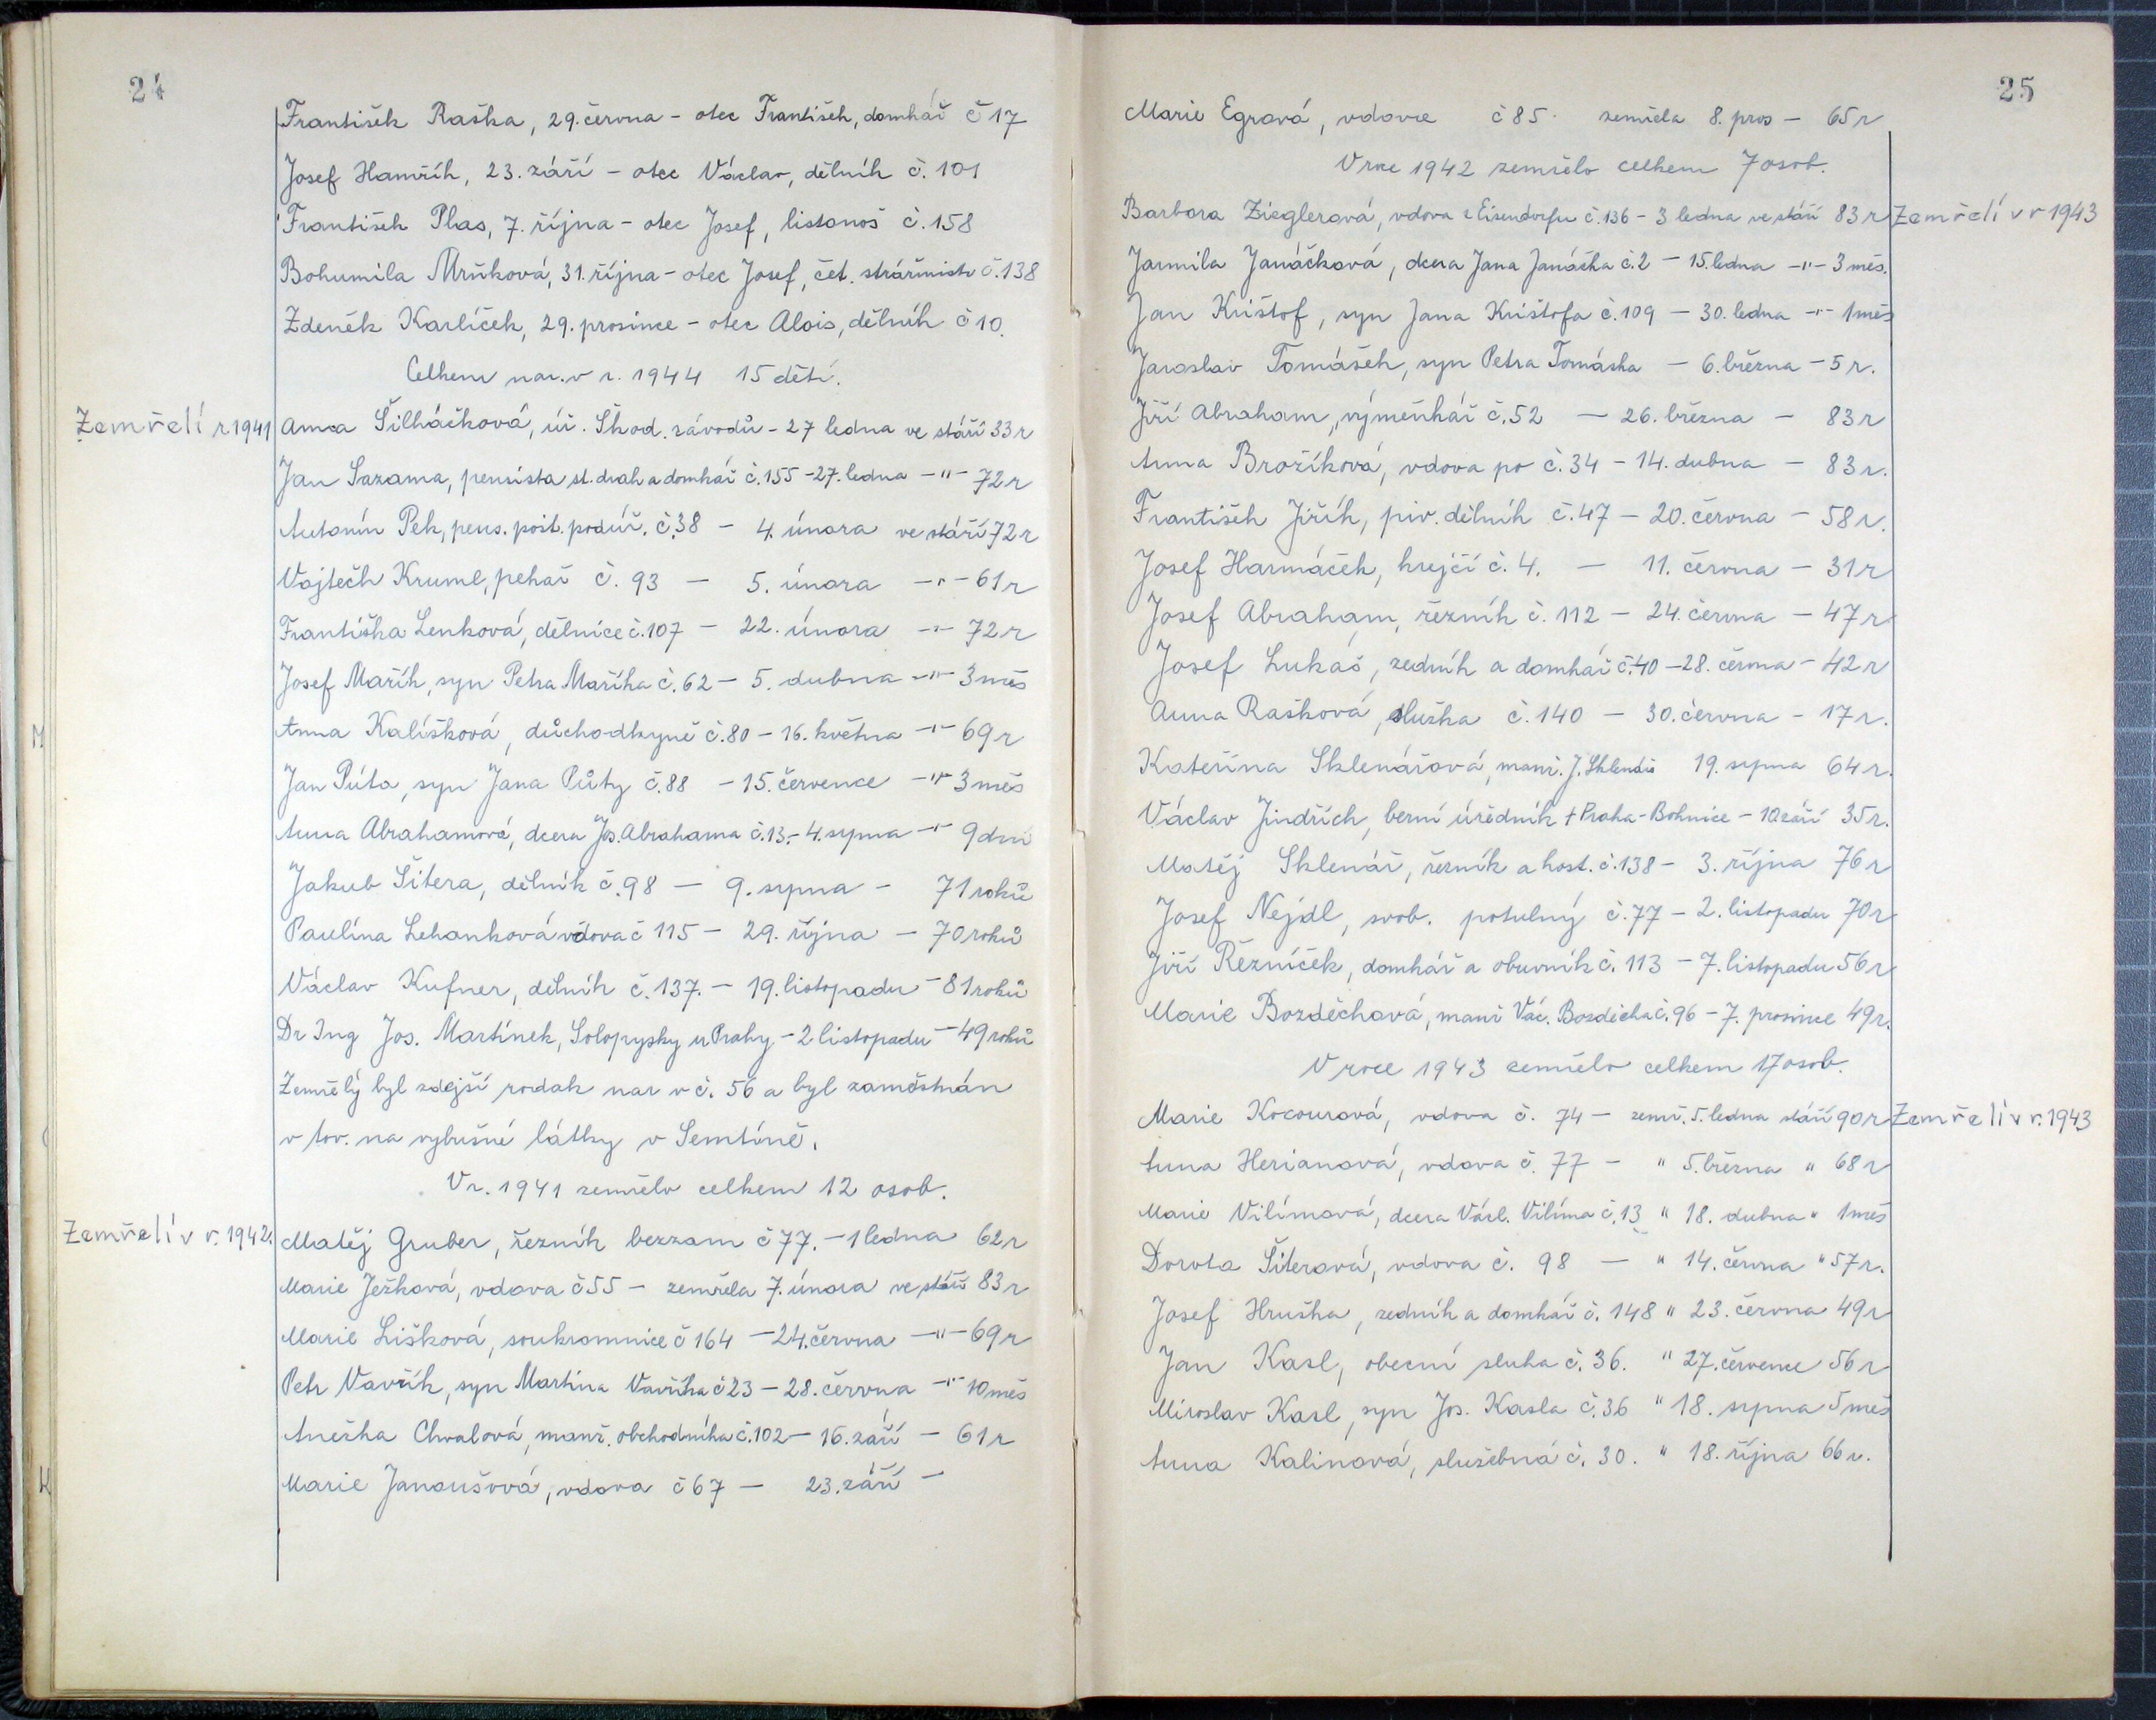 24
František Raška, 29. června - otec František, domkář č 17
Josef Hamřík, 23. září - otec Václav, dělník č. 101
František Plas, 7. října - otec Josef, listonoš č. 158
Bohumila Mrňková, 31. října - otec Josef, čet. strážmistr č. 138
Zdeněk Karlíček, 29. prosince - otec Alois, dělník č 10.
Celkem nar. v r. 1944 15 dětí.
Zemřelí r 1941 Anna Šilháčková, úř. Škod. závodů - 27 ledna ve stáří 33 r
Jan Sazama, pensista st. drah a domkář č. 155 - 27. ledna -"- 72 r
Antonín Pek, pens. pošt. podúř. č. 38 - 4. února ve stáří 72 r
Vojtěch Kruml, pekař č. 93 - 5. února -"- 61 r
Františka Lenková, dělnice č. 107 - 22. února -"- 72 r
Josef Mařík, syn Petra Maříka č. 62 - 5. dubna -"- 3 měs
Anna Kalíšková, důchodkyně č. 80 - 16. května -"- 69 r
Jan Půta, syn Jana Půty č. 88 - 15. července -"- 3 měs
Anna Abrahamová, dcera Jos. Abrahama č. 13. - 4. srpna -"- 9 dní
Jakub Šitera, dělník č. 98 - 9. srpna - 71 roků
Paulína Lehanková vdova č 115 - 29. října - 70 roků
Václav Kufner, dělník č. 137. - 19. listopadu - 81 roků
Dr Ing Jos. Martínek, Solopysky u Prahy - 2 listopadu - 49 roků
Zemřelý byl zdejší rodak nar v č. 56 a byl zaměstnán
v tov. na vybušné látky v Semtíně.
V r. 1941 zemřelo celkem 12 osob.
Zemřelí v r. 1942. Matěj Gruber, řezník bezzem č 77. - 1 ledna 62 r
Marie Ježková, vdova č 55 - zemřela 7. února ve stáří 83 r
Marie Lišková, soukromnice č 164 - 24. června -"- 69 r
Petr Vavřík, syn Martina Vavříka č 23 - 28. června -"- 10 měs
Anežka Chvalová, manž. obchodníka č. 102 - 16. září - 61 r
Marie Janoušová, vdova č 67 - 23. září -
25
Marie Egrová, vdova č 85. zemřela 8. pros - 65 r
V roce 1942 zemřelo celkem 7 osob.
Barbora Zieglerová, vdova z Eisendorfu č. 136 - 3 ledna ve stáří 83 r Zemřelí v r 1943
Jarmila Janáčková, dcera Jana Janáčka č. 2 - 15. ledna -"- 3 měs.
Jan Krištof, syn Jana Krištofa č. 109 - 30. ledna -"- 1 měs
Jaroslav Tomášek, syn Petra Tomáska - 6. března - 5 r.
Jiří Abraham, výměnkář č. 52 - 26. března - 83 r
Anna Brožíková, vdova po č. 34 - 14. dubna - 83 r.
František Jiřík, piv. dělník č. 47 - 20. června - 58 r.
Josef Harmáček, krejčí č. 4. - 11. června - 31 r
Josef Abraham, řezník č. 112 - 24. června - 47 r
Josef Lukáš, zedník a domkář č. 40 - 28. června - 42 r
Anna Rašková, služka č. 140 - 30. června - 17 r.
Kateřina Sklenářová, manž. J. Sklenáře 19. srpna 64 r.
Václav Jindřich, berní úředník + Praha-Bohnice - 10 září 35 r.
Matěj Sklenář, řezník a host. č. 138 - 3. října 76 r
Josef Nejdl, svob. potulný č. 77 - 2. listopadu 70 r
Jiří Řezníček, domkář a obuvník č. 113 - 7. listopadu 56 r
Marie Bozděchová, manž Vác. Bozděcha č. 96 - 7. prosince 49 r.
V roce 1943 zemřelo celkem 17 osob.
Marie Kocourová, vdova č. 74 - zemř. 5. ledna stáří 90 r Zemřelí v r. 1943
Anna Herianová, vdova č. 77 - " 5. března " 68 r
Marie Vilímová, dcera Václ. Vilíma č. 13 " 18. dubna " 1 měs
Dorota Šiterová, vdova č. 98 - " 14. června " 57 r.
Josef Hruška, zedník a domkář č. 148 " 23. června 49 r
Jan Kasl, obecní sluha č. 36. " 27. července 56 r
Miroslav Kasl, syn Jos. Kasla č. 36 " 18. srpna 5 měs
Anna Kalinová, služebná č. 30. " 18. října 66 r.